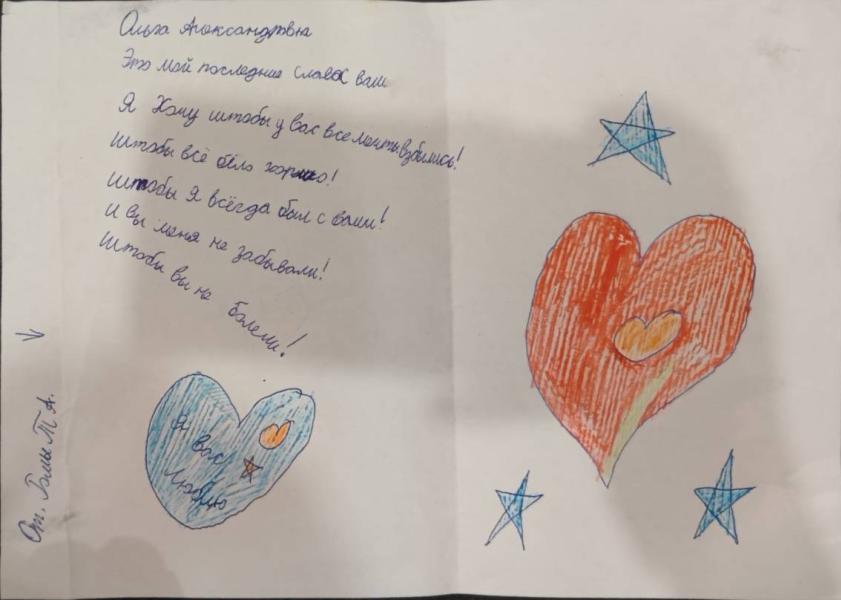 Ольга Алоксандровна
Это мой последние славох вам
Я Хочу штобы у вас все мечты взбылись!
Штобы всё було хорошо!
Штобы я всёгда был с вами!
И вы меня не забывали!
Штобы вы не болели!
Я вас
люблю
От. Ромы Т А.